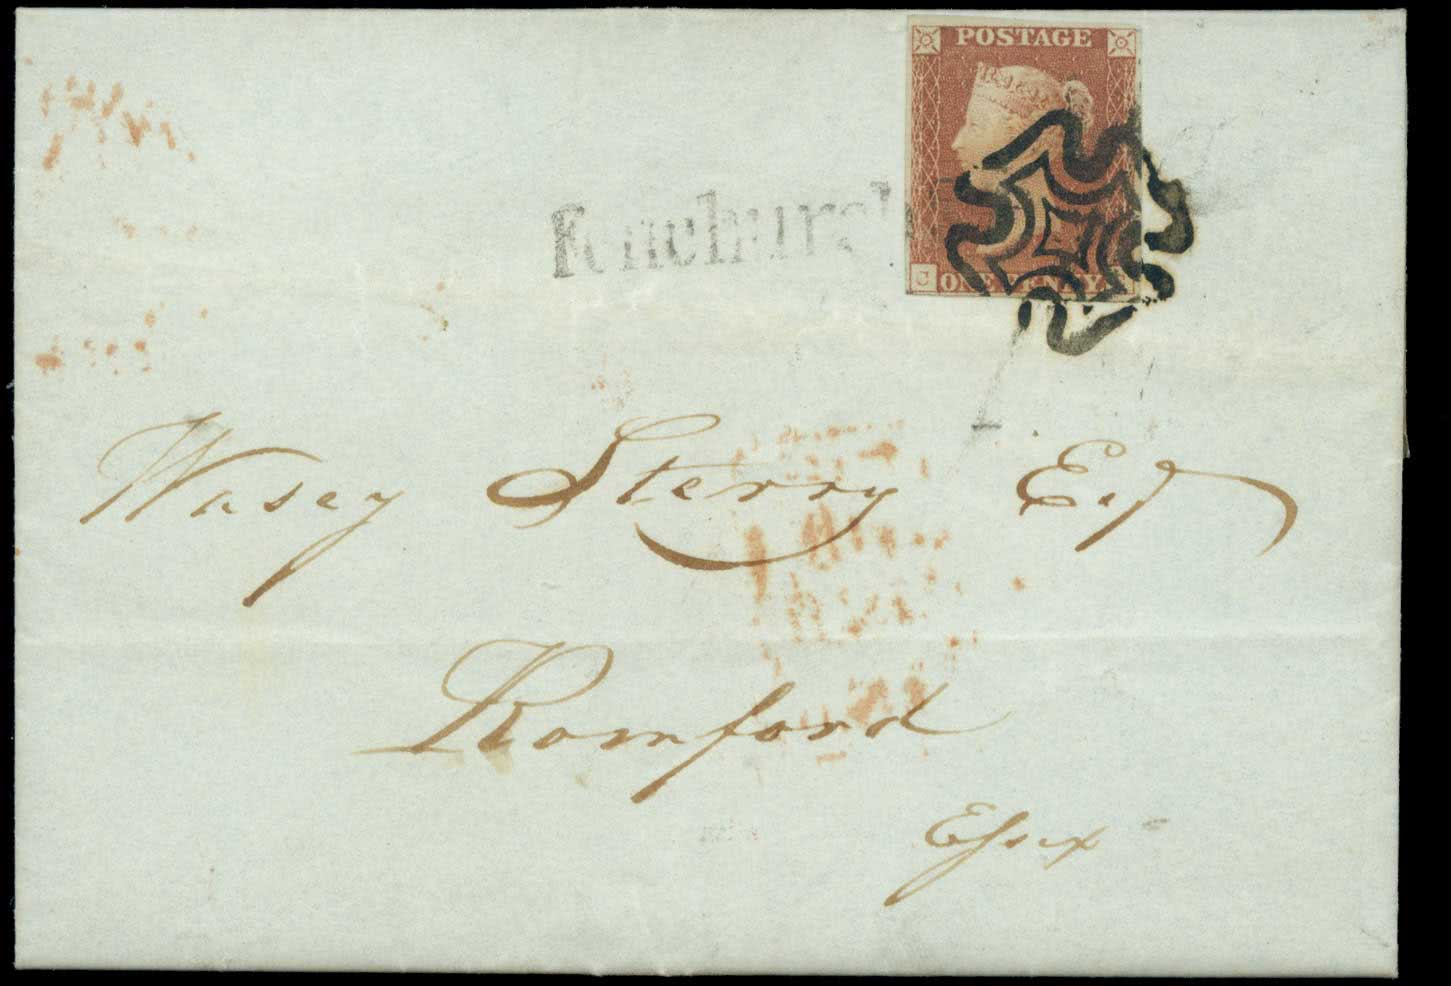 POSTAGE
Fenchurch
C ONE PENNY.
Wasey Sterry Esq
Romford
Essex